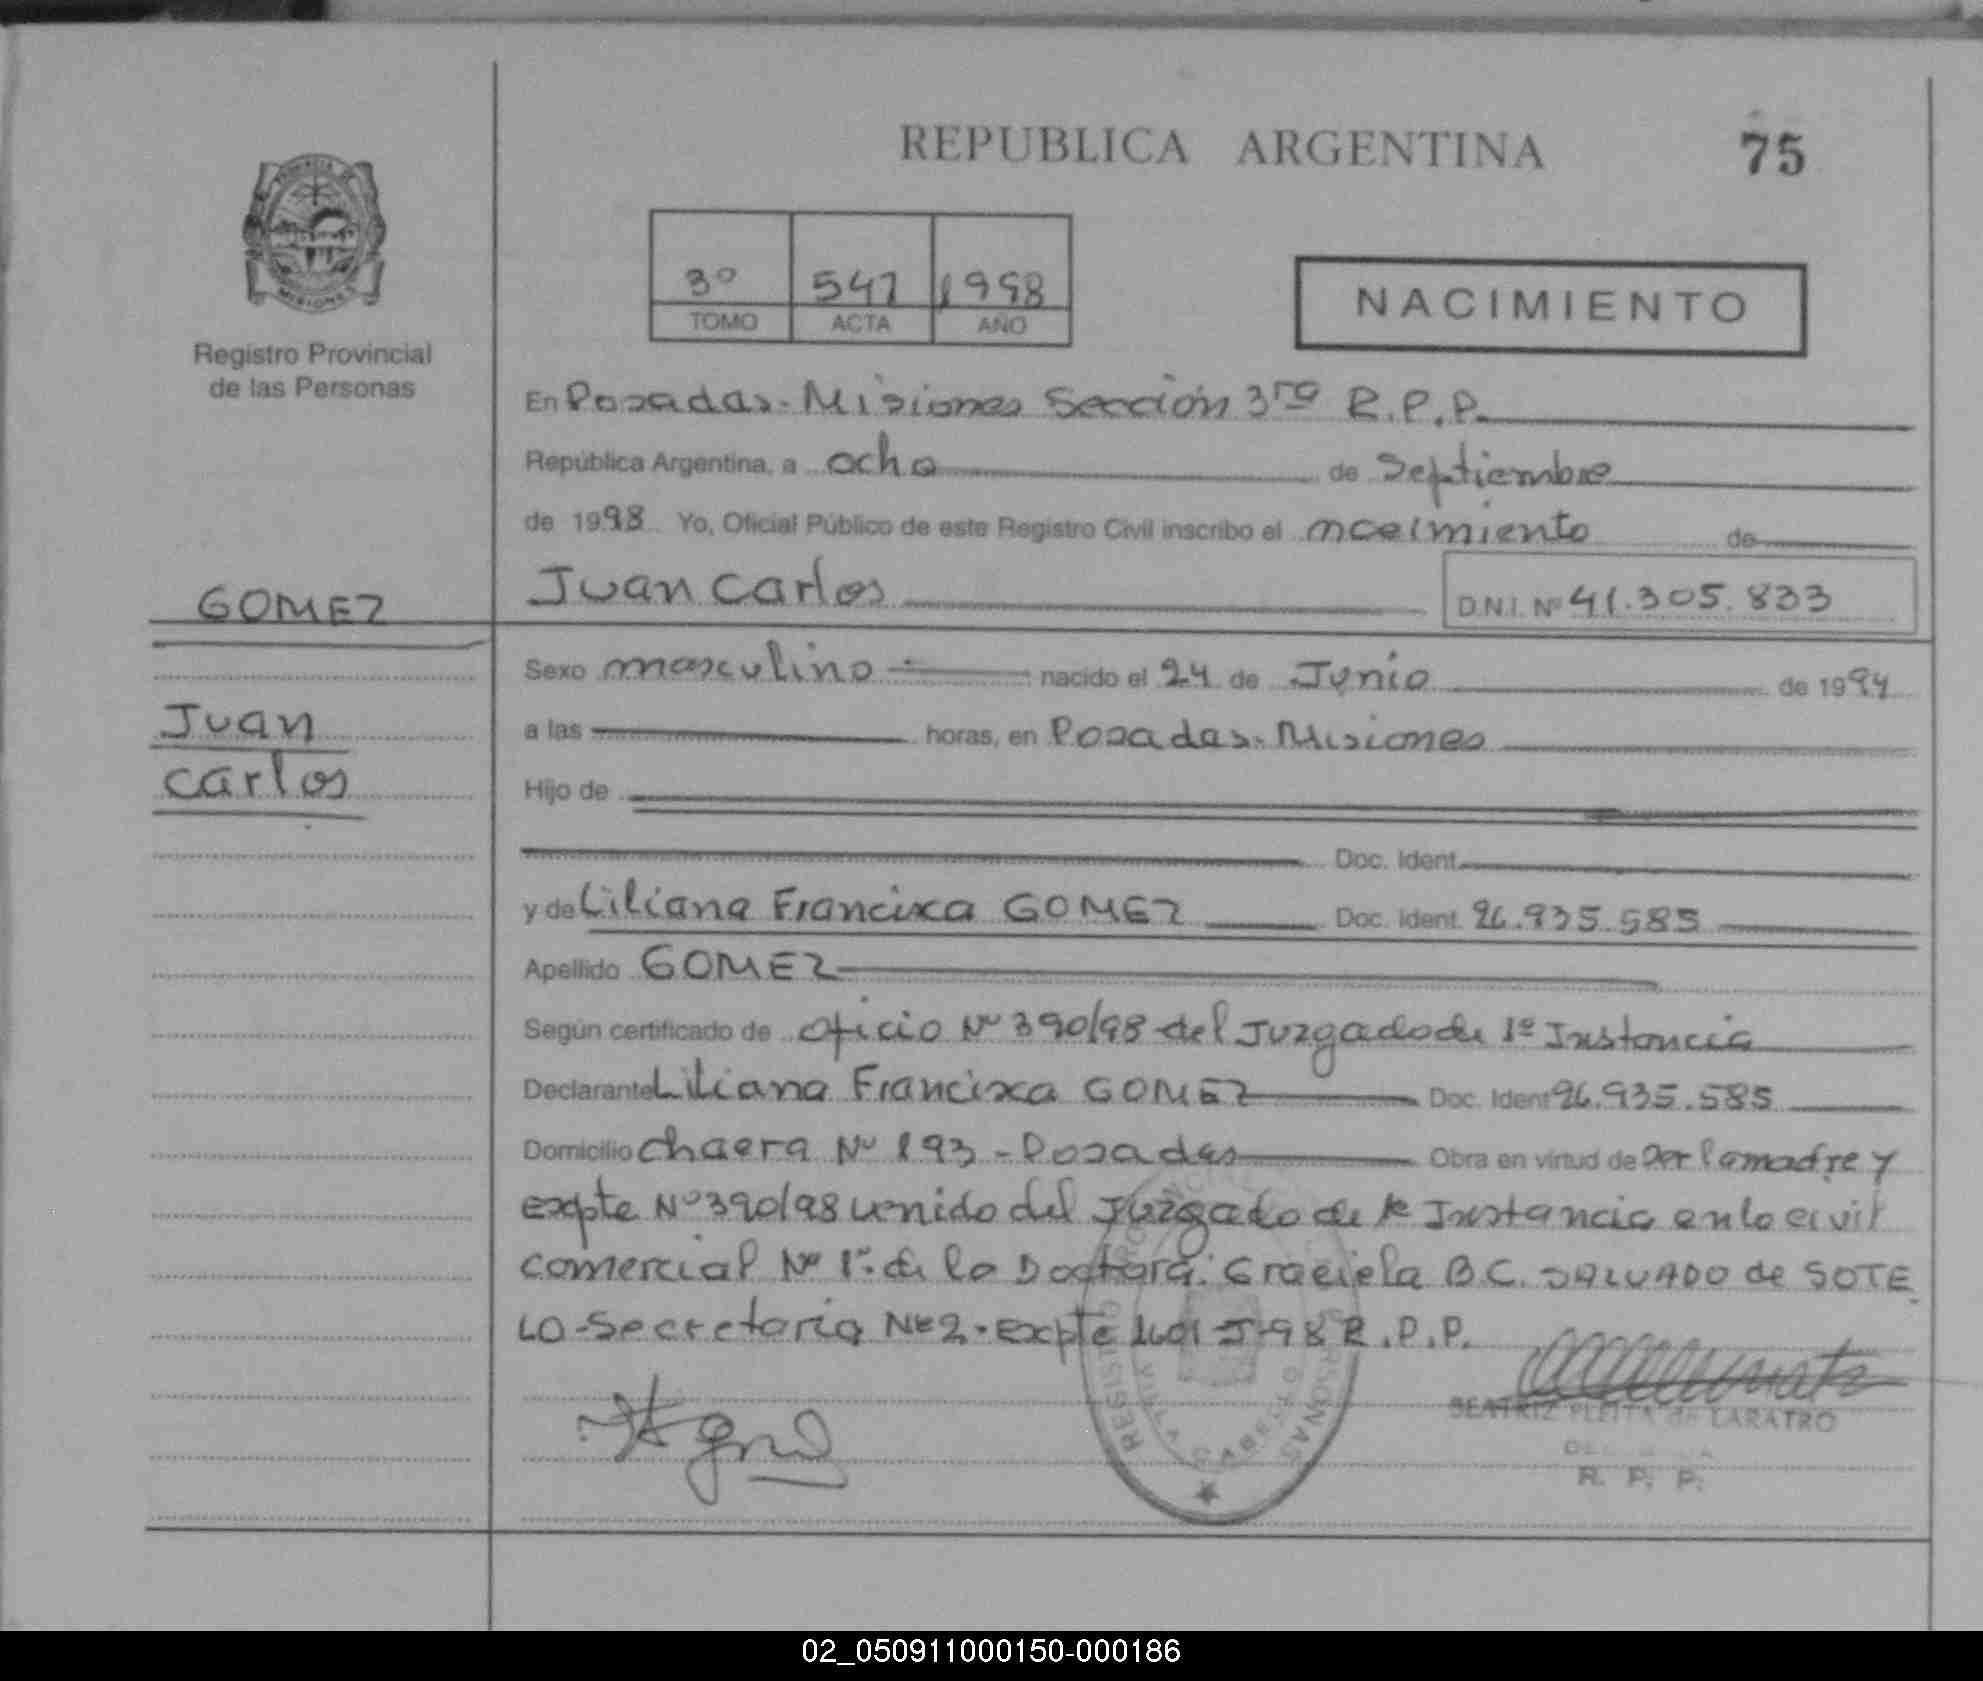 REPUBLICA ARGENTINA
75
3º 547 1998
TOMO ACTA AÑO
NACIMIENTO
Registro Provincial
de las Personas
En Posadas - Misiones Sección 3ra R.P.P.
República Argentina, a ocho de Septiembre
de 1998 Yo, Oficial Público de este Registro Civil inscribo el nacimiento de
GOMEZ
Juan Carlos
D.N.I. Nº 41.305.833
Sexo masculino nacido el 24 de Junio de 1994
Juan
a las horas, en Posadas - Misiones
Carlos
Hijo de
Doc. Ident.
y de Liliana Francisca GOMEZ Doc. Ident. 26.935.585
Apellido GOMEZ
Según certificado de Oficio Nº 390/98 del Juzgado de 1º Instancia
Declarante Liliana Francisca GOMEZ Doc. Ident 26.935.585
Domicilio chacra Nº 193 - Posadas Obra en virtud de Per la madre y
expte Nº 390/98 venido del Juzgado de 1º Instancia en lo civil
comercial Nº 1º de la Doctora: Graciela B.C. SALVADO de SOTE
LO - Secretaria Nº 2 - expte J-98 R.P.P.
BEATRIZ PLEITA de LARATRO
R. P. P.
02_050911000150-000186